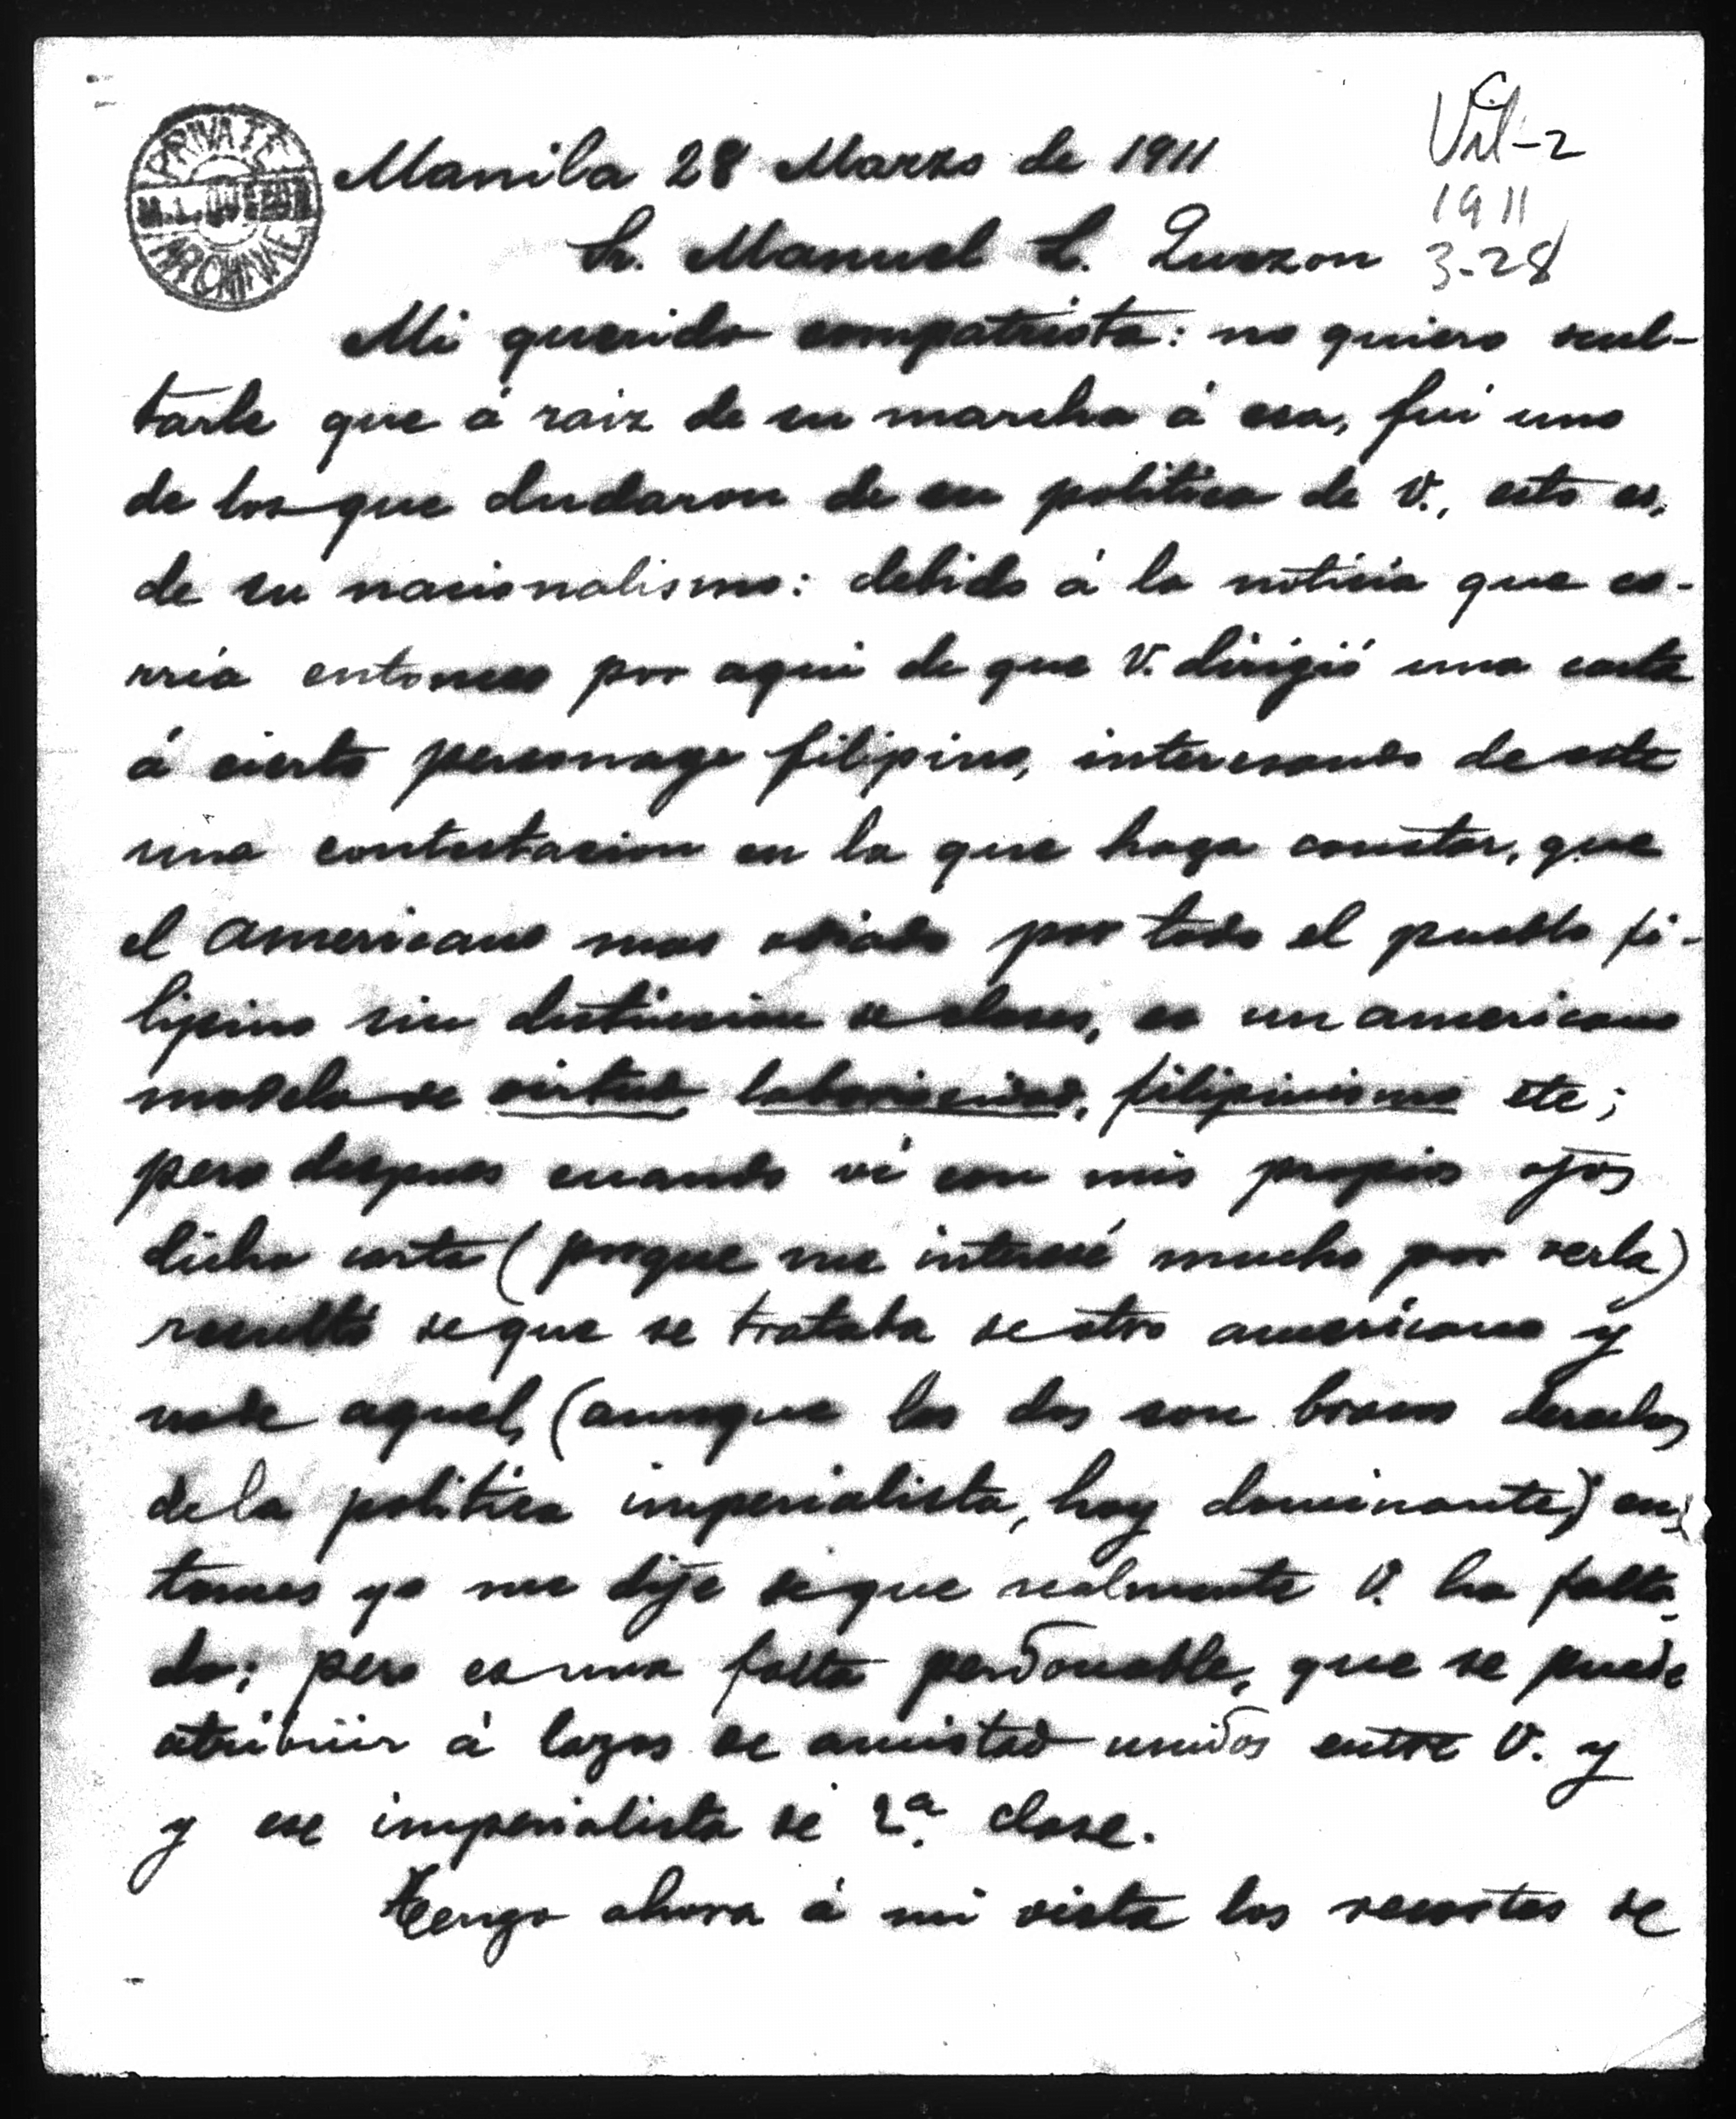 PRIVATE
M. L. QUEZON
ARCHIVE
Vil-2
1911
3-28
Manila 28 Marzo de 1911
Sr. Manuel L. Quezon
Mi querido compatriota: no quiero ocul-
tarle que á raiz de su marcha á esa, fui uno
de los que dudaron de su politica de V., esto es,
de su nacionalismo: debido á la noticia que co-
rria entonces por aqui de que V. dirigió una carta
á cierto personage filipino, interesando de este
una contestacion en la que haga constar, que
el americano mas odiado por todo el pueblo fi-
lipino sin distincion de clases, es un americano
modelo de virtud, laboriosidad, filipinismo etc;
pero despues cuando ví con mis propios ojos
dicha carta (porque me interesé mucho por verla)
resultó de que se trataba de otro americano y
no de aquel, (aunque los dos son brazos derechos
de la politica imperialista, hoy dominante) en-
tonces yo me dije de que realmente V. ha falta-
do; pero es una falta perdonable, que se puede
atribuir á lazos de amistad unidos entre V. y
y ese imperialista de 2ª clase.
Tengo ahora á mi vista los recortes de